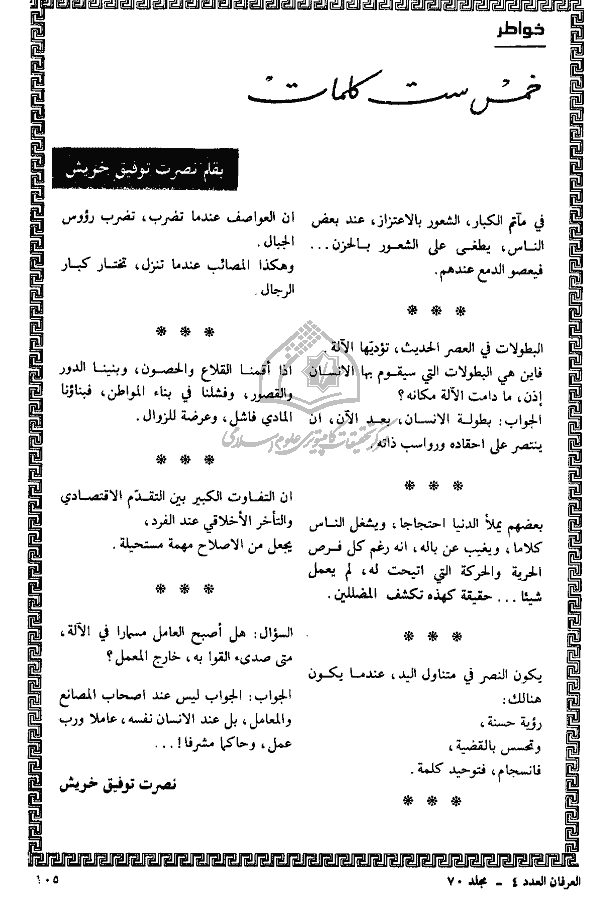 خواطر
خمس ست كلمات
بقلم نصرت توفيق خريش
في مآتم الكبار، الشعور بالاعتزاز، عند بعض
الناس، يطغى على الشعور بالحزن...
فيعصو الدمع عندهم.
* * *
البطولات في العصر الحديث، تؤديها الآلة.
فاين هي البطولات التي سيقوم بها الانسان
إذن، ما دامت الآلة مكانه؟
الجواب: بطولة الانسان، بعد الآن، ان
ينتصر على احقاده ورواسب ذاته.
* * *
بعضهم يملأ الدنيا احتجاجا، ويشغل الناس
كلاما، ويغيب عن باله، انه رغم كل فرص
الحرية والحركة التي اتيحت له، لم يعمل
شيئا... حقيقة كهذه تكشف المضللين.
* * *
يكون النصر في متناول اليد، عندما يكون
هنالك:
رؤية حسنة،
وتحسس بالقضية،
فانسجام، فتوحيد كلمة.
* * *
ان العواصف عندما تضرب، تضرب رؤوس
الجبال.
وهكذا المصائب عندما تنزل، تختار كبار
الرجال.
* * *
اذا أقمنا القلاع والحصون، وبنينا الدور
والقصور، وفشلنا في بناء المواطن، فبناؤنا
المادي فاشل، وعرضة للزوال.
* * *
ان التفاوت الكبير بين التقدّم الاقتصادي
والتأخر الأخلاقي عند الفرد،
يجعل من الاصلاح مهمة مستحيلة.
* * *
السؤال: هل أصبح العامل مسمارا في الآلة،
متى صدىء القوا به، خارج المعمل؟
الجواب: الجواب ليس عند اصحاب المصانع
والمعامل، بل عند الانسان نفسه، عاملا ورب
عمل، وحاكما مشرفا!...
نصرت توفيق خريش
مركز تحقیقات کامپیوتری علوم اسلامی
العرفان العدد ٤ - مجلد ٧٠
١٠٥